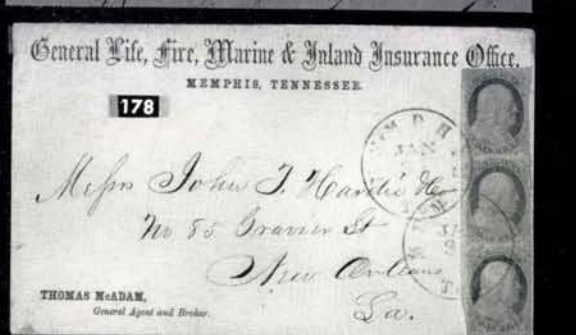 General Life, Fire, Marine & Inland Insurance Office.
MEMPHIS, TENNESSEE.
178
Messrs John T. Hardie &c
No 85 Gravier St
New Orleans
La.
THOMAS McADAM,
General Agent and Broker.